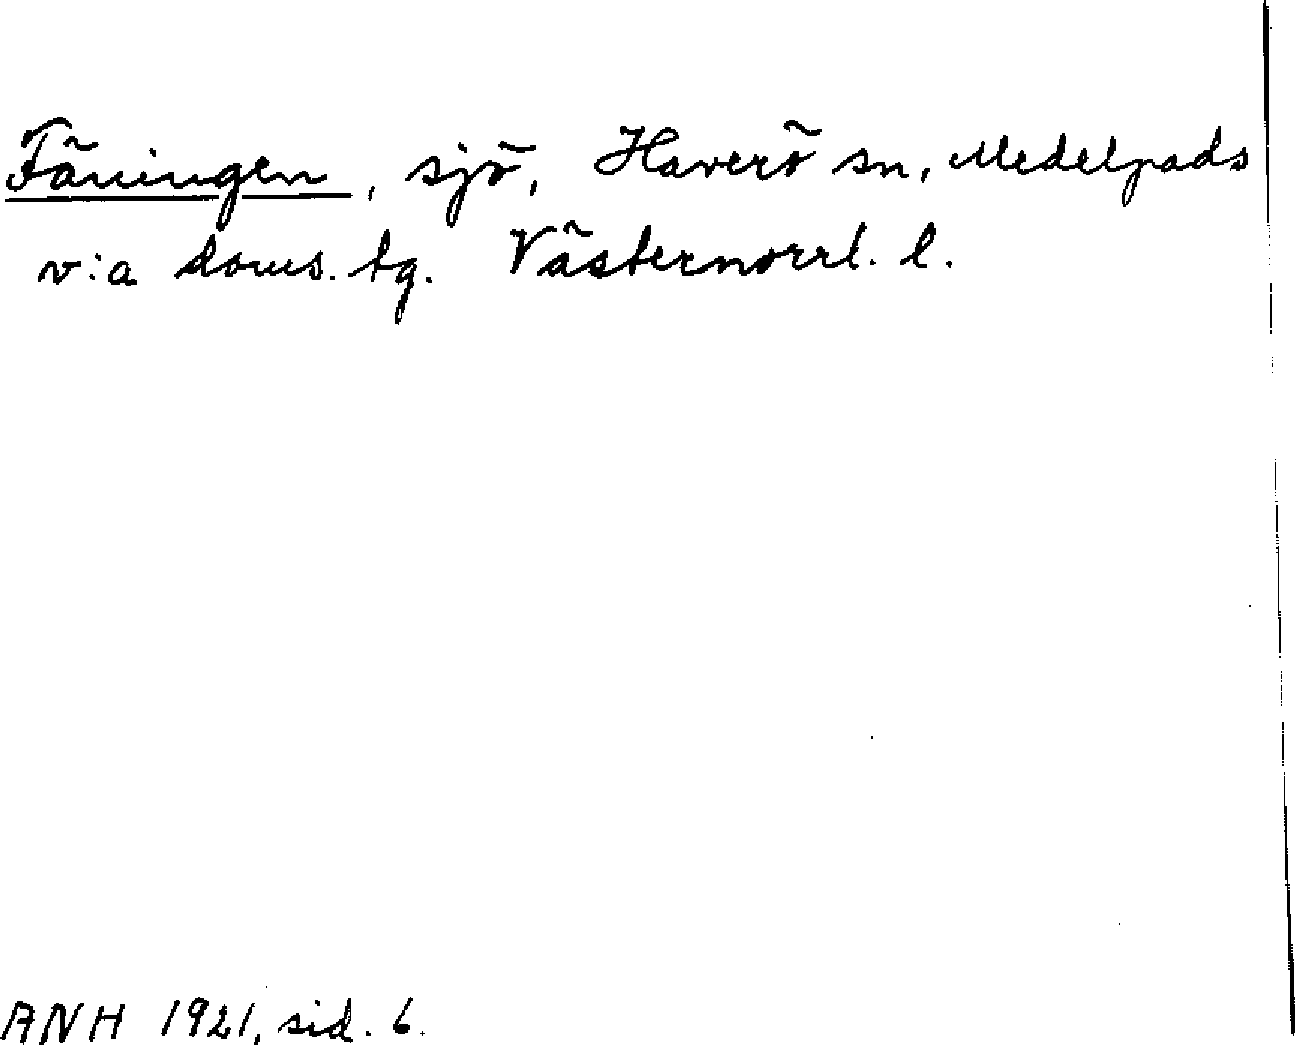 Fäningen, sjö, Haverö sn, Medelpads
v:a doms. tg. Västernorrl. l.
ANH 1921, sid. 6.